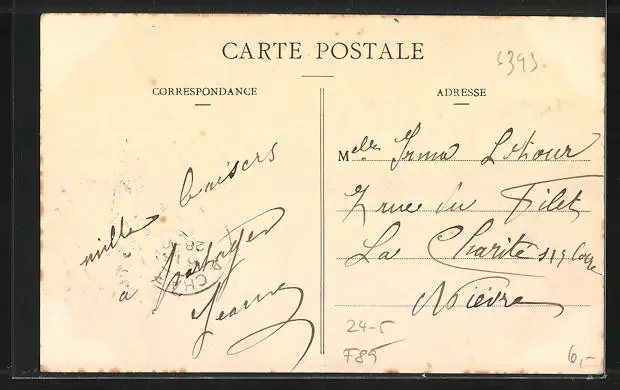 CARTE POSTALE
6393
CORRESPONDANCE
ADRESSE
mille baisers
a partager
Jeanne
Melle Irma
7 rue du Filet
La Charité s/s Loire
Nièvre
CHA
28
24-5
F85
6,-